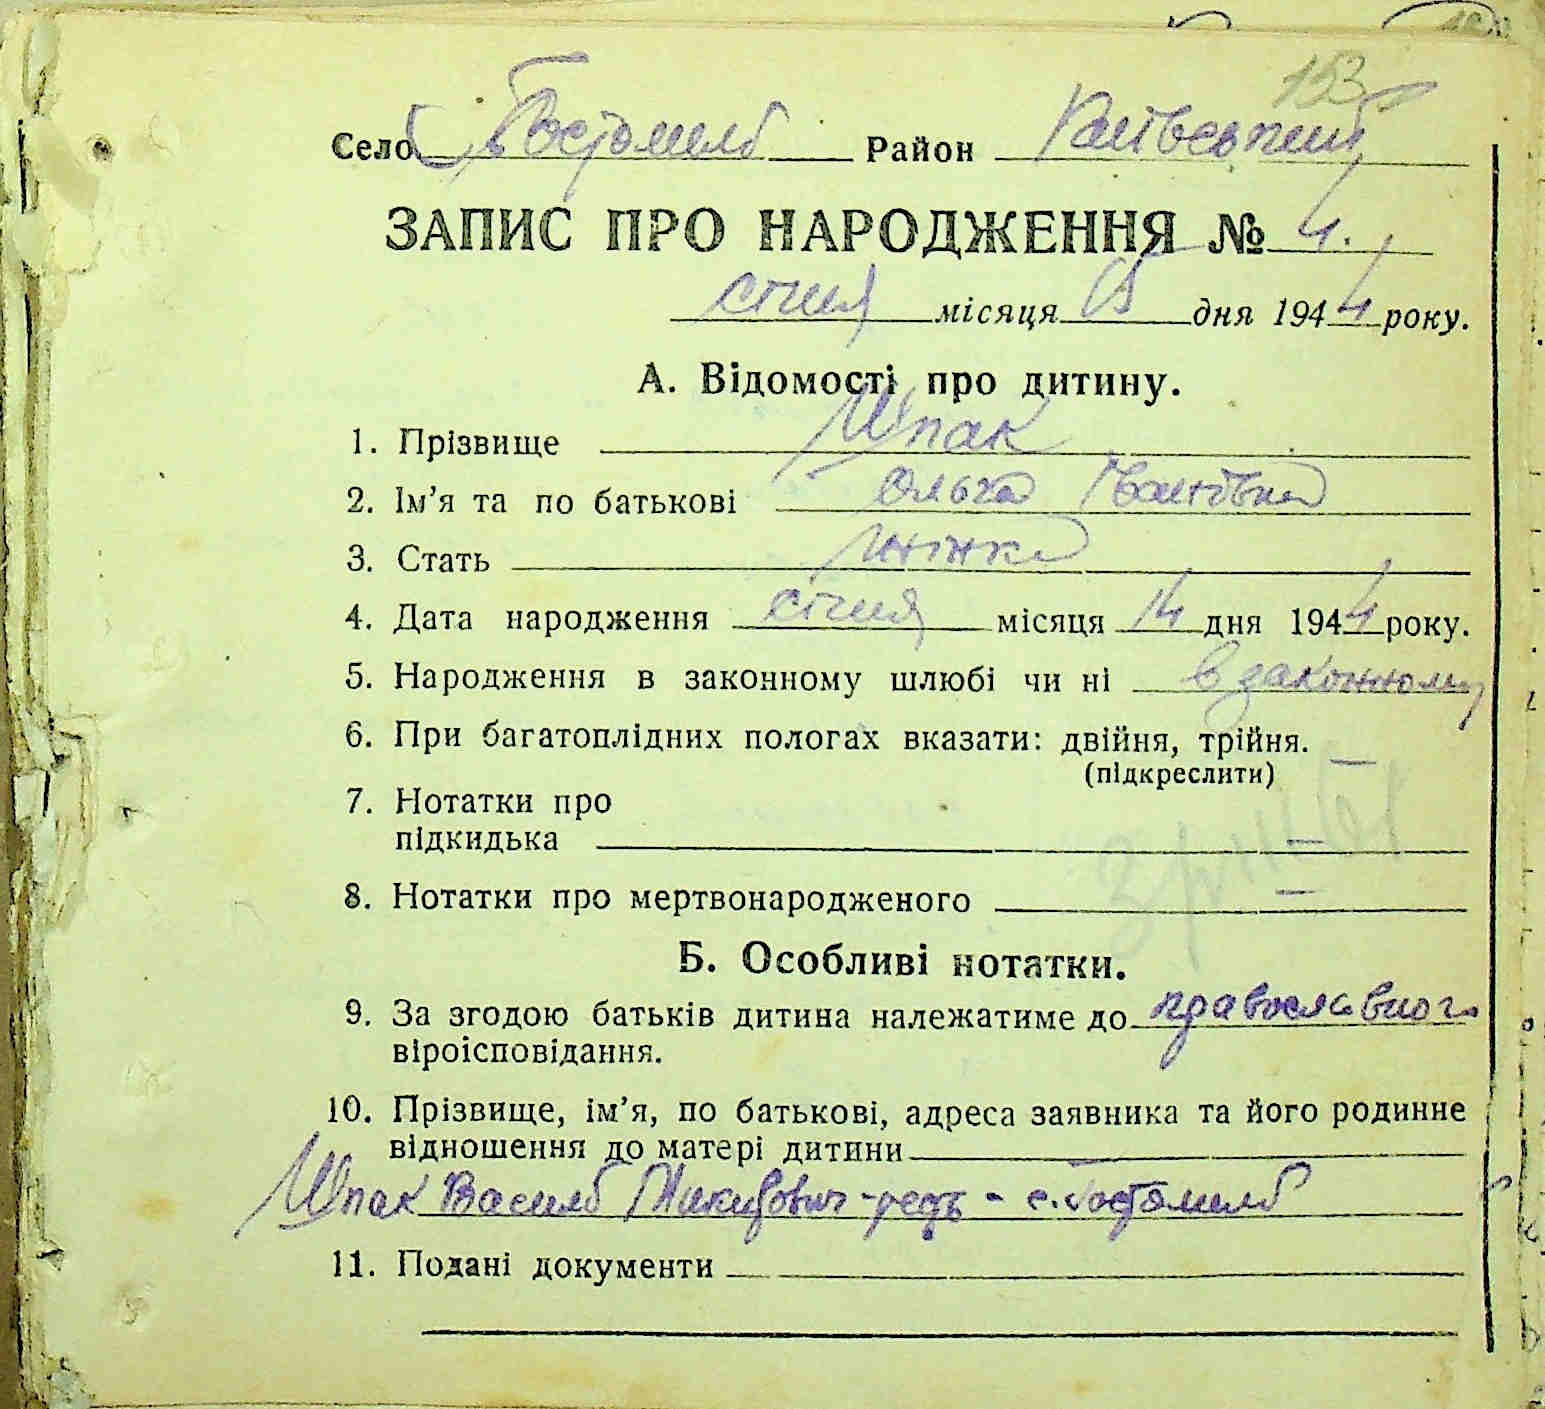 153
Село Гостомель Район Київський
ЗАПИС ПРО НАРОДЖЕННЯ № 4.
січня місяця 15 дня 1944 року.
А. Відомості про дитину.
1. Прізвище Шпак
2. Ім’я та по батькові Ольга Іванівна
3. Стать жінка
4. Дата народження січня місяця 14 дня 1944 року.
5. Народження в законному шлюбі чи ні в законному
6. При багатоплідних пологах вказати: двійня, трійня. —
(підкреслити)
7. Нотатки про
підкидька —
8. Нотатки про мертвонародженого —
Б. Особливі нотатки.
9. За згодою батьків дитина належатиме до православного
віроісповідання.
10. Прізвище, ім’я, по батькові, адреса заявника та його родинне
відношення до матері дитини
Шпак Василь Микитович - - с. Гостомель
11. Подані документи